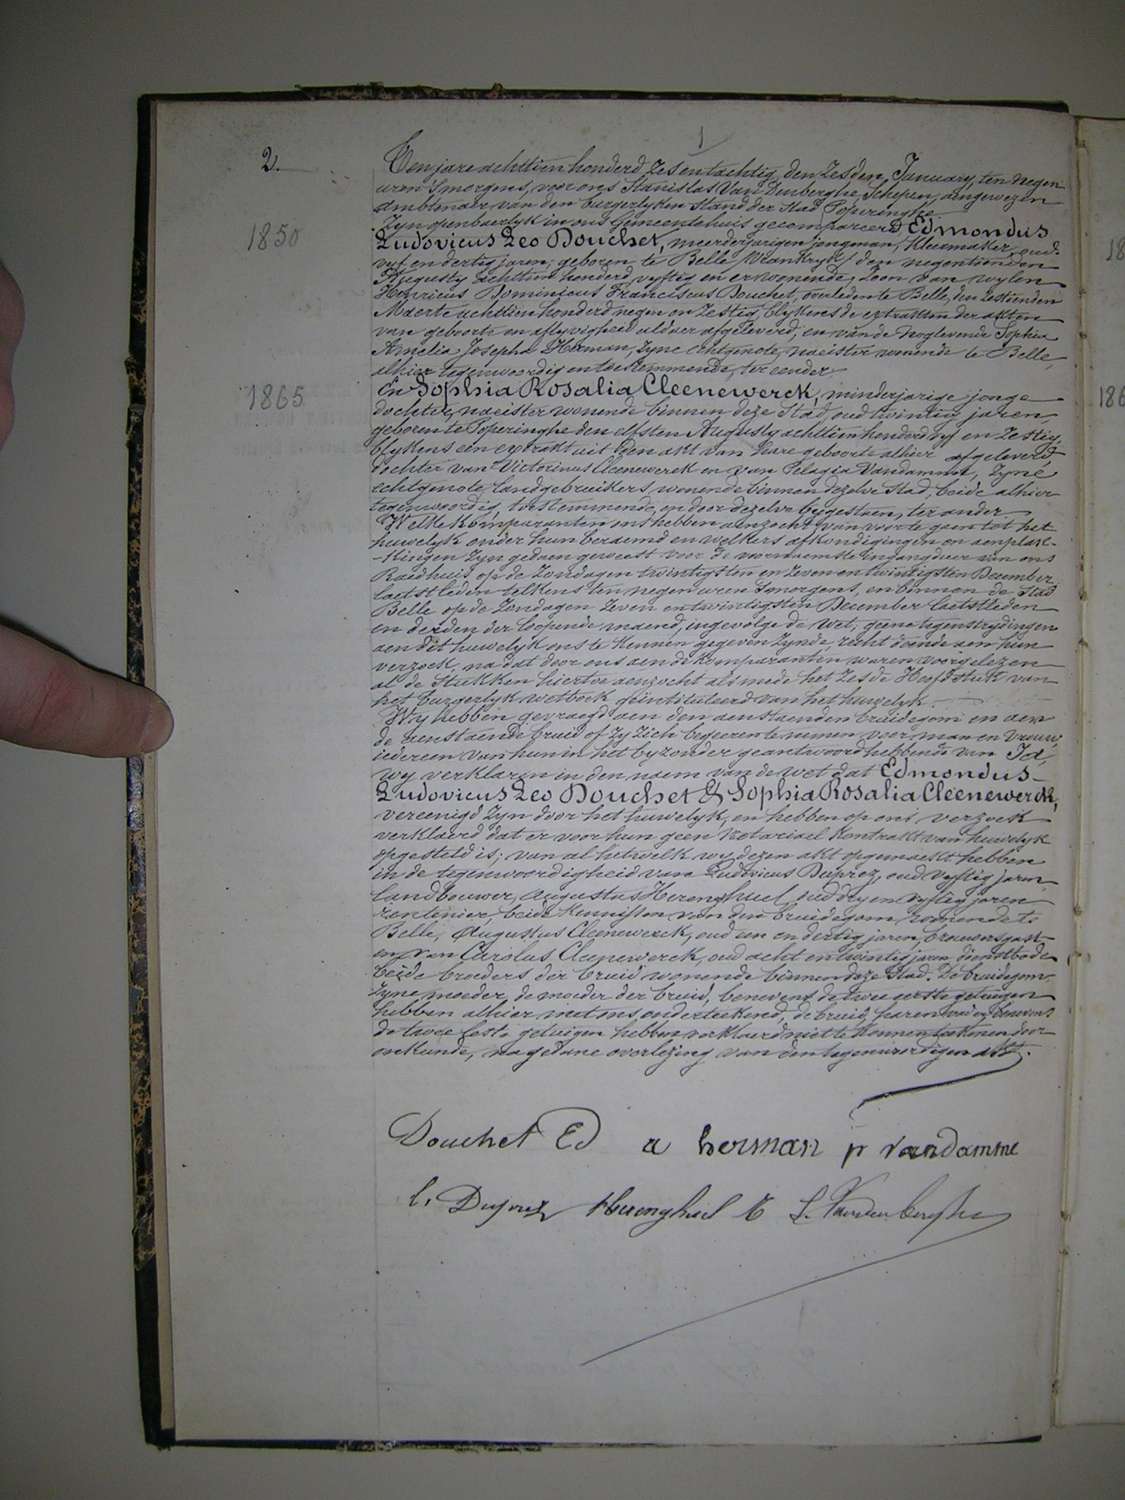 1
2.
Ten jare achttien honderd zes en tachtig, den zesden January, ten negen
uren smorgens, voor ons Stanislas Van Denberghe, Schepen, aengewezen
Ambtenaer van den burgerlyken stand der Stad Poperinghe
Zyn openbaerlyk in ons Gemeentehuis gecompareerd Edmondus
1850
Ludovicus Leo Douchet, meerderjarigen jongman, kleermaker, oud
vyf en dertig jaren, geboren te Belle (Vrankryk) den negentienden
Augusty achttien honderd vyftig en er wonende, zoon van wylen
Henricus Dominicus Franciscus Douchet, overleden te Belle, den zestienden
Maerte achttien honderd negen en zestig, blykens de extrakten der akten
van geboorte en aflyvigheid aldaer afgeleverd, en van de nog levende Sophia
Amelia Josepha Herman, zyne echtgenote, naeister wonende te Belle,
alhier tegenwoordig en toestemmende, ter eender
1865
En Sophia Rosalia Cleenewerck, minderjarige jonge
dochter, naeister wonende binnen deze Stad, oud twintig jaren
geboren te Poperinghe den elfsten Augusty achttien honderd vyf en zestig,
blykens een extrakt uit den akt van hare geboorte alhier afgeleverd,
dochter van Victorinus Cleenewerck en van Pelagia Vandamme, zyne
echtgenote, landgebruikers, wonende binnen dezelve Stad, beide alhier
tegenwoordig, toestemmende, en door dezelve bygestaen, ter ander
Welke komparanten ons hebben aenzocht van voor te gaen tot het
huwelyk onder hun beraemd en welkers afkondigingen en aenplak-
-kingen zyn gedaen geweest voor de voornaemste ingangdeur van ons
Raedhuis op de zondagen twintigsten en zeven en twintigsten December
laetstleden telkens ten negen uren smorgens, en binnen de Stad
Belle op de zondagen zeven en twintigsten December laetstleden
en derden der loopende maend, ingevolge de wet, geene tegenstrydingen
aen dit huwelyk ons te kennen gegeven zynde, recht doende aen hun
verzoek, na dat door ons aen de komparanten waren voorgelezen
al de stukken hiertoe aenzocht alsmede het zesde Hoofdstuk van
het burgerlyk wetboek geïntituleerd van het huwelyk.
Wy hebben gevraegd aen den aenstaenden bruidegom en aen
de aenstaende bruid of zy zich begeeren te nemen voor man en vrouw,
iedereen van hun in het byzonder geantwoord hebbende van Ja,
wy verklaren in den naem van de wet dat Edmondus
Ludovicus Leo Douchet & Sophia Rosalia Cleenewerck,
vereenigd zyn door het huwelyk, en hebben op ons verzoek
verklaerd dat er voor hun geen notariael kontrakt van huwelyk
opgesteld is; van al hetwelk wy dezen akt opgemaekt hebben
in de tegenwoordigheid van Ludovicus Duprez, oud vyftig jaren
landbouwer, Augustus Herenghuel, oud dry en vyftig jaren
rentenier, beide kennissen van den bruidegom, wonende te
Belle, Augustus Cleenewerck, oud een en dertig jaren, brouwersgast
en van Carolus Cleenewerck, oud acht en twintig jaren dienstbode
beide broeders der bruid wonende binnen deze Stad. De bruidegom,
zyne moeder, de moeder der bruid, benevens de twee eerste getuigen
hebben alhier met ons onderteekend, de bruid, haren vader benevens
de twee leste getuigen hebben verklaerd niet te konnen teekenen door
onkunde, na gedane overlezing van den tegenwoordigen akt.
Douchet Ed a herman p vandamme
l, Duprez Herenghuel E S. Vandenberghe
18
186